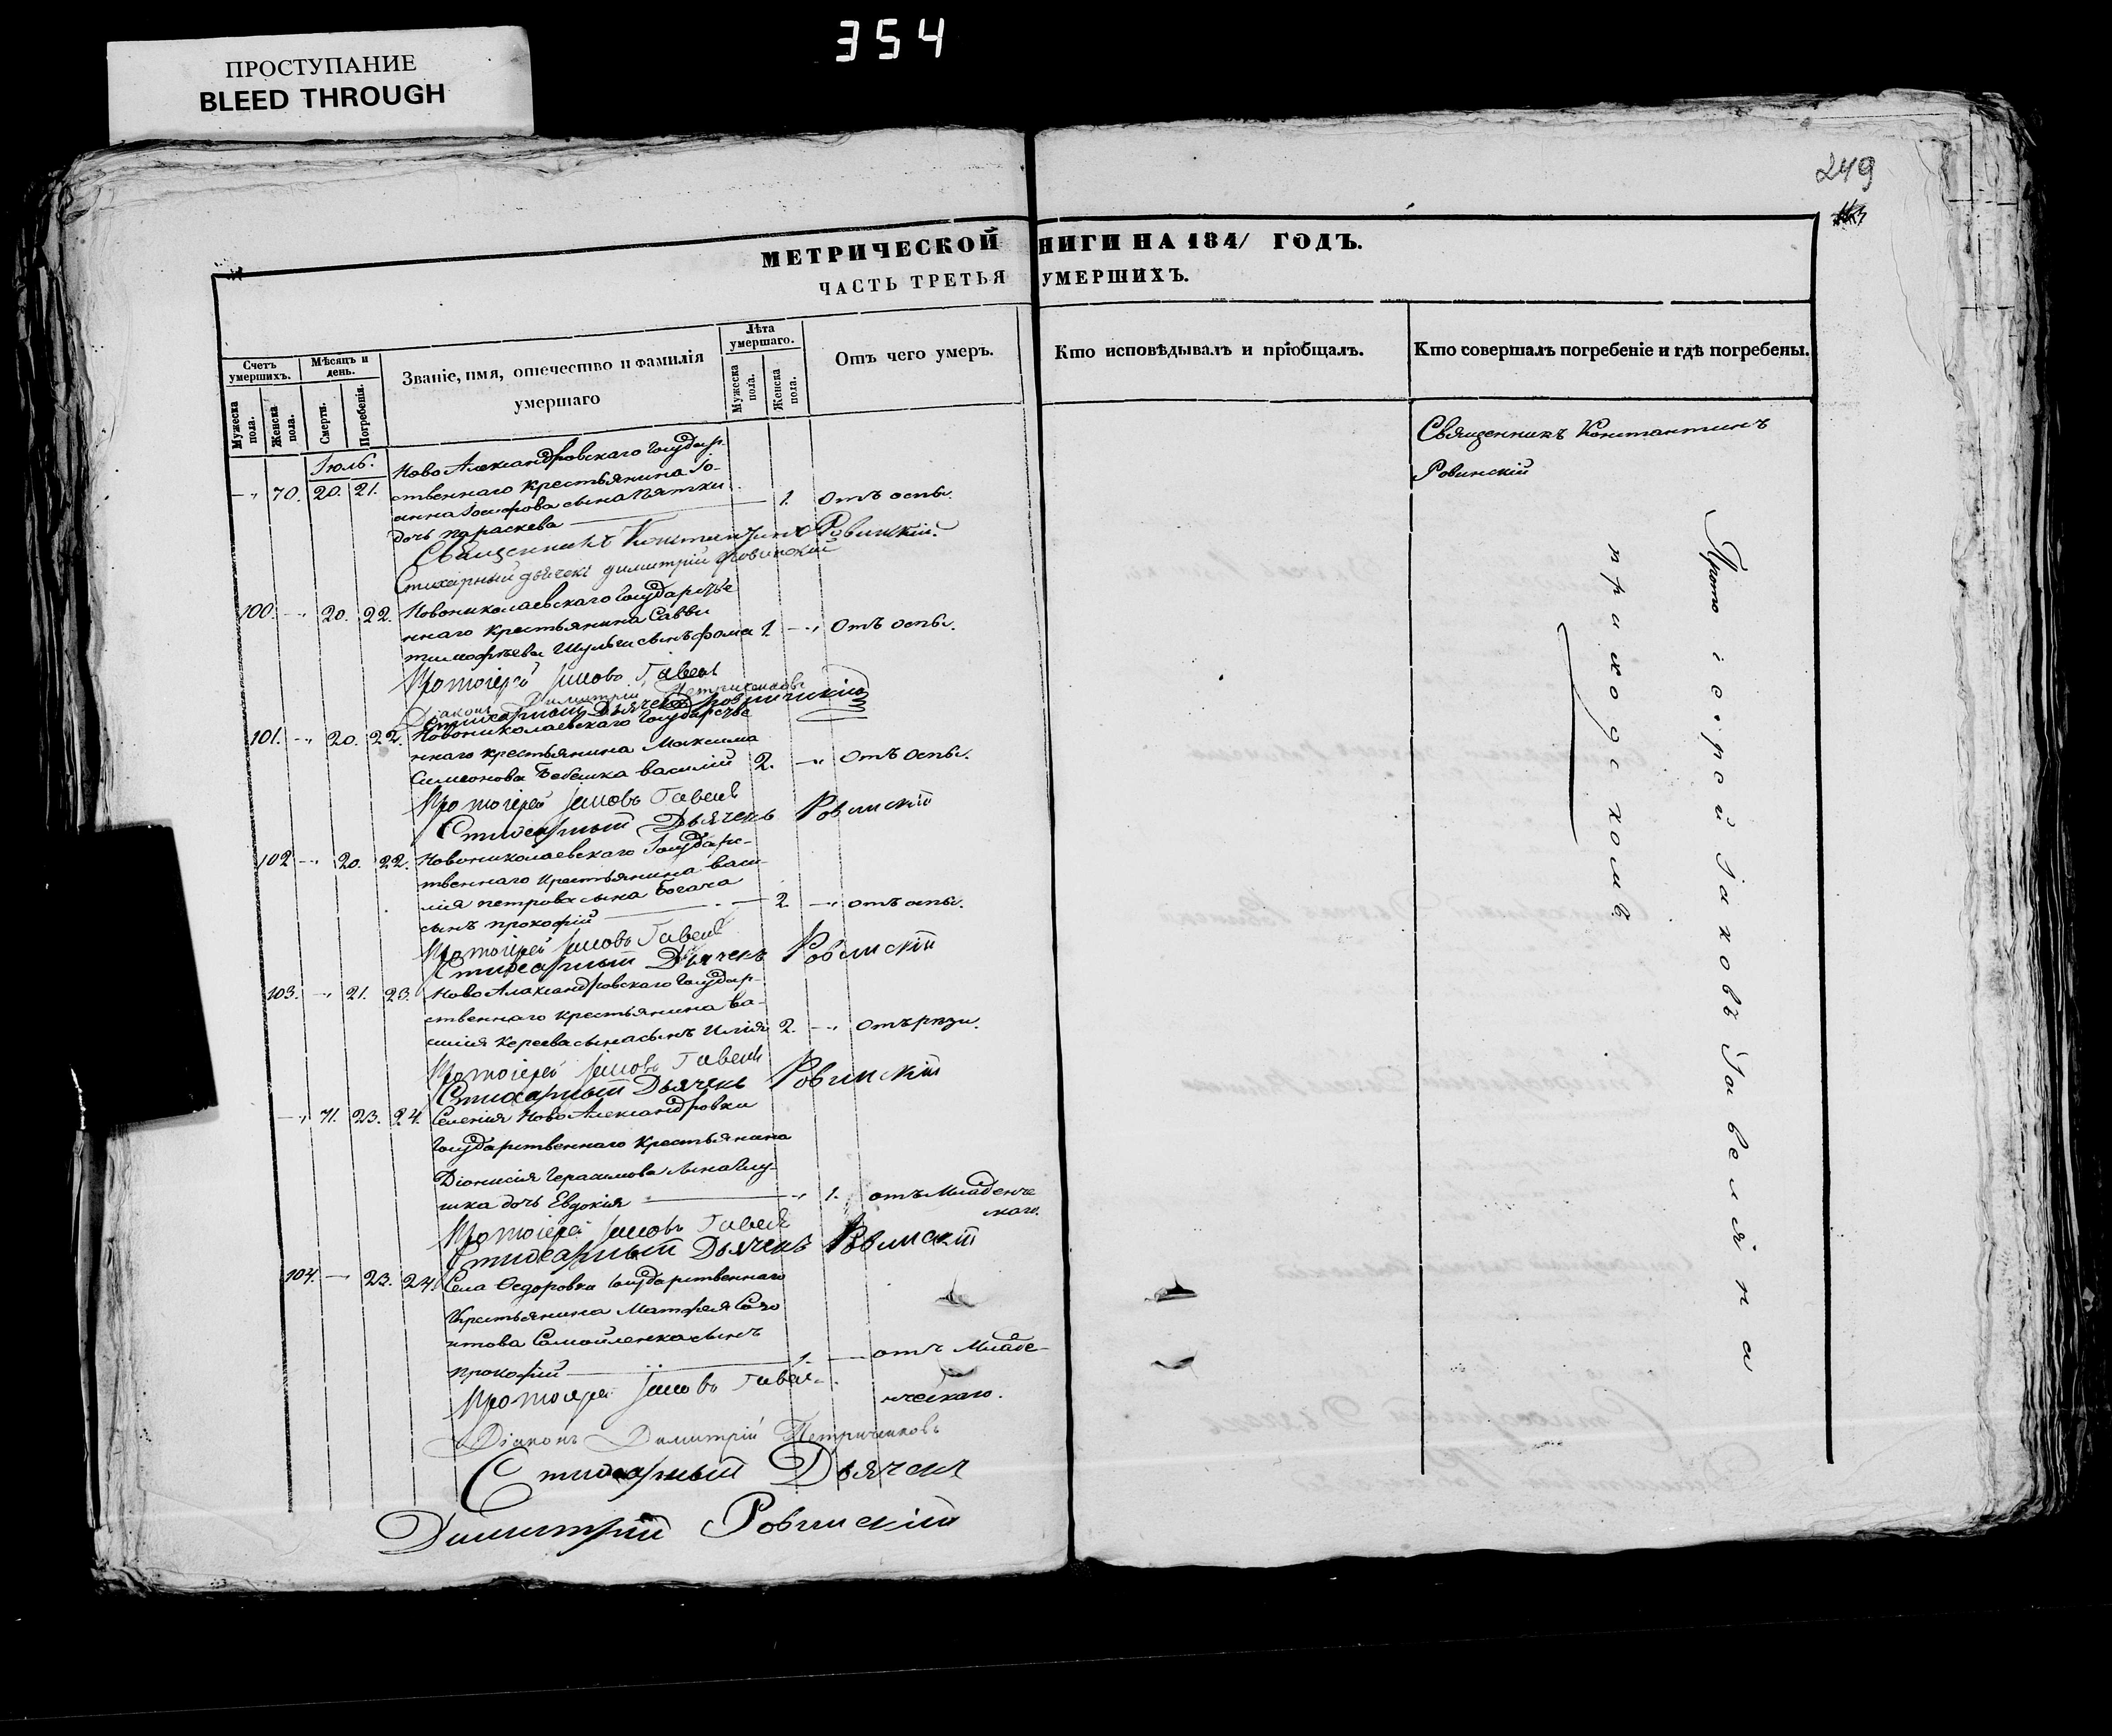 354
ПРОСТУПАНИЕ
BLEED THROUGH
249
МЕТРИЧЕСКОЙ НИГИ НА 1841 ГОДЪ.
ЧАСТЬ ТРЕТЬЯ УМЕРШИХЪ.
Счетъ умершихъ.
Мужеска пола.
Женска пола.
Мѣсяцъ и день.
Смерти.
Погребенія.
Званіе, имя, отечество и фамилія
умершаго
Лѣта умершаго.
Мужеска пола.
Женска пола.
Отъ чего умеръ.
Кто исповѣдывалъ и пріобщалъ.
Кто совершалъ погребеніе и гдѣ погребены.
Іюль.
Ново Александровскаго Государ-
70. 20. 21. ственнаго крестьянина Іо-
анна Іосифова сына Пятки
дочь Параскева 1. Отъ оспы.
Священникъ Константинъ Ровинскій.
Стихарный дьячекъ Димитрій Ровинскій
100. 20. 22. Новониколаевскаго Государстве
ннаго крестьянина Саввы
Тимофѣева Шульги сынъ Фома 1. Отъ оспы.
Протоіерей Іаковъ Гавель
Діаконъ Димитрій Петриченковъ
Стихарный Дьячекъ Ровинскій
101. 20. 22. Новониколаевскаго Государстве
ннаго крестьянина Максима
Симеонова Бебешка Василій 2. Отъ оспы.
Протоіерей Іаковъ Гавель
Стихарный Дьячекъ Ровинскій
102 20. 22. Новониколаевскаго Государс-
твеннаго крестьянина Васи-
лія Петрова сына Богача
сынъ Прокофій 2 отъ оспы.
Протоіерей Іаковъ Гавель
Стихарный Дьячекъ Ровинскій
103. 21. 23. Ново Алаксандровскаго Государ-
ственнаго крестьянина Ва-
силія Кереева сына сынъ Илія 2. Отъ рѣзи.
Протоіерей Іаковъ Гавель
Стихарный Дьячекъ Ровинскій
71. 23. 24. Селенія Ново Александровки
Государственнаго Крестьянина
Діонисія Герасимова сына
дочь Евдокія 1. отъ Младенче
скаго.
Протоіерей Іаковъ Гавель
Стихарный Дьячекъ Ровинскій
104. 23. 24. Села Ѳедоровки Государственнаго
Крестьянина Матфея
Самойленка сынъ
Прокофій 1. отъ Младе-
нческаго.
Протоіерей Іаковъ Гавель
Діаконъ Димитрій Петриченковъ
Стихарный Дьячекъ
Димитрій Ровинскій
Священникъ Константинъ
Ровинскій
Протоіерей Іаковъ Гавеля на
приходскомъ